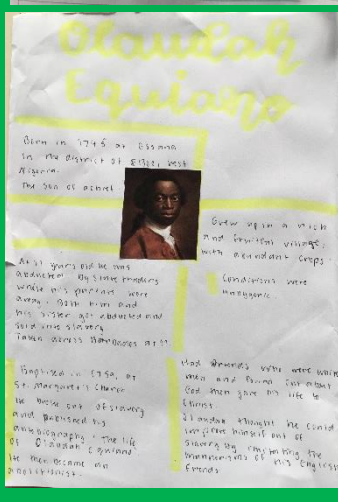 Olaudah
Equiano
Born in 1745 at Essana
in the district of Eboe, west
Nigeria.
The son of a chief
Grew up in a rich
and fruitful village,
with abundant crops
Conditions were
At 11 years old he was
abducted by slave traders
while his parents were
away. Both him and
his sister got abducted and
sold into slavery
Taken across Barbados at 11.
Baptised in 1759, at
St. Margaret's Church
He broke out of slavery
and published his
autobiography 'The life
of Olaudah Equiano'
He then became an
abolitionist.
Had friends who were white
men and found out about
God then gave his life to
Christ.
Olaudah thought he could
himself out of
slavery by imitating the
mannerisms of his English
friends